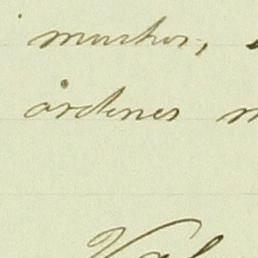 muchos,
órdenes
Val